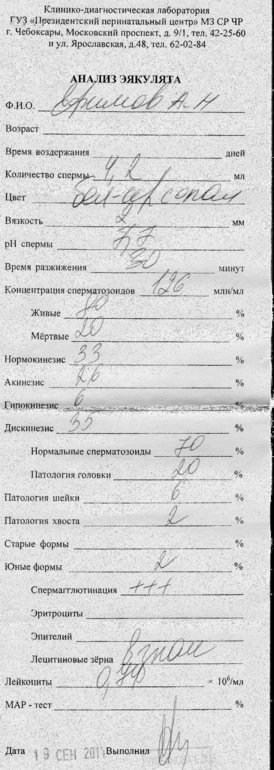 Клинико-диагностическая лаборатория
ГУЗ «Президентский перинатальный центр» МЗ СР ЧР
г. Чебоксары, Московский проспект, д. 9/1, тел. 42-25-60
и ул. Ярославская, д.48, тел. 62-02-84
АНАЛИЗ ЭЯКУЛЯТА
Ф.И.О. Ефимов А.Н
Возраст
Время воздержания дней
Количество спермы 4,2 мл
Цвет
Вязкость 2 мм
pH спермы 7,7
Время разжижения 30 минут
Концентрация сперматозоидов 126 млн/мл
Живые 80 %
Мёртвые 20 %
Нормокинезис 33 %
Акинезис 26 %
Гипокинезис 6 %
Дискинезис 35 %
Нормальные сперматозоиды 70 %
Патология головки 20 %
Патология шейки 6 %
Патология хвоста 2 %
Старые формы %
Юные формы 2 %
Спермагглютинация +++
Эритроциты
Эпителий
Лецитиновые зёрна
Лейкоциты × 10⁶/мл
МАР - тест %
Дата 19 СЕН Выполнил